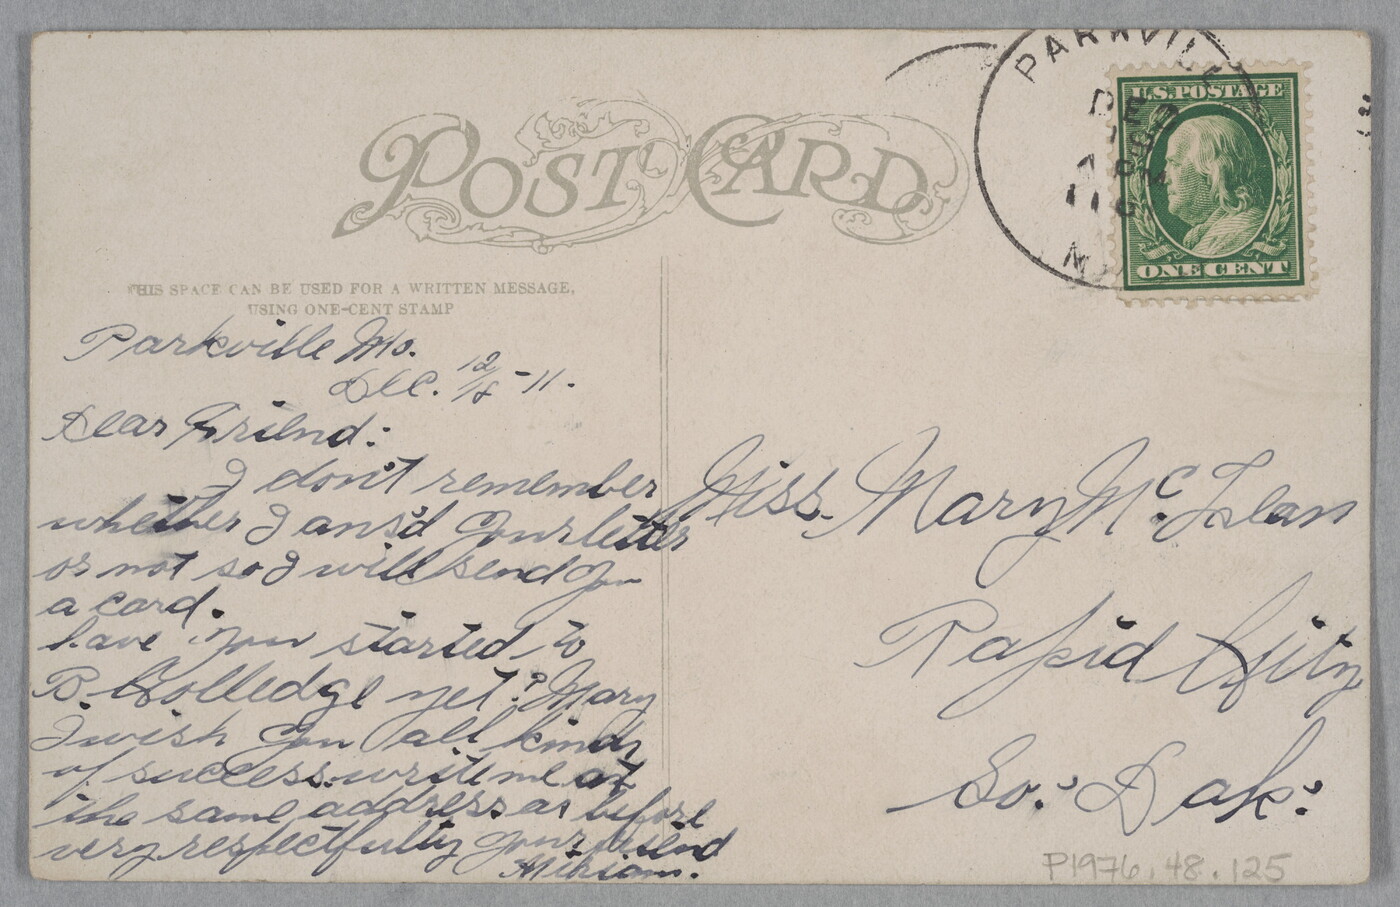 POST CARD
PARKVILLE
DEC
MO.
U.S. POSTAGE
ONE CENT
THIS SPACE CAN BE USED FOR A WRITTEN MESSAGE,
USING ONE-CENT STAMP
Parkville Mo.
Dec. 12/18-11.
Dear Friend:
I don't remember
whether I ans'd your letter
or not so I will send you
a card.
have you started to
B. Colledge yet? Mary
I wish you all kinds
of success. write me at
the same address as before
very respectfully your friend
Miriam.
Miss. Mary McLean
Rapid City
So. Dak.
P1976.48.125